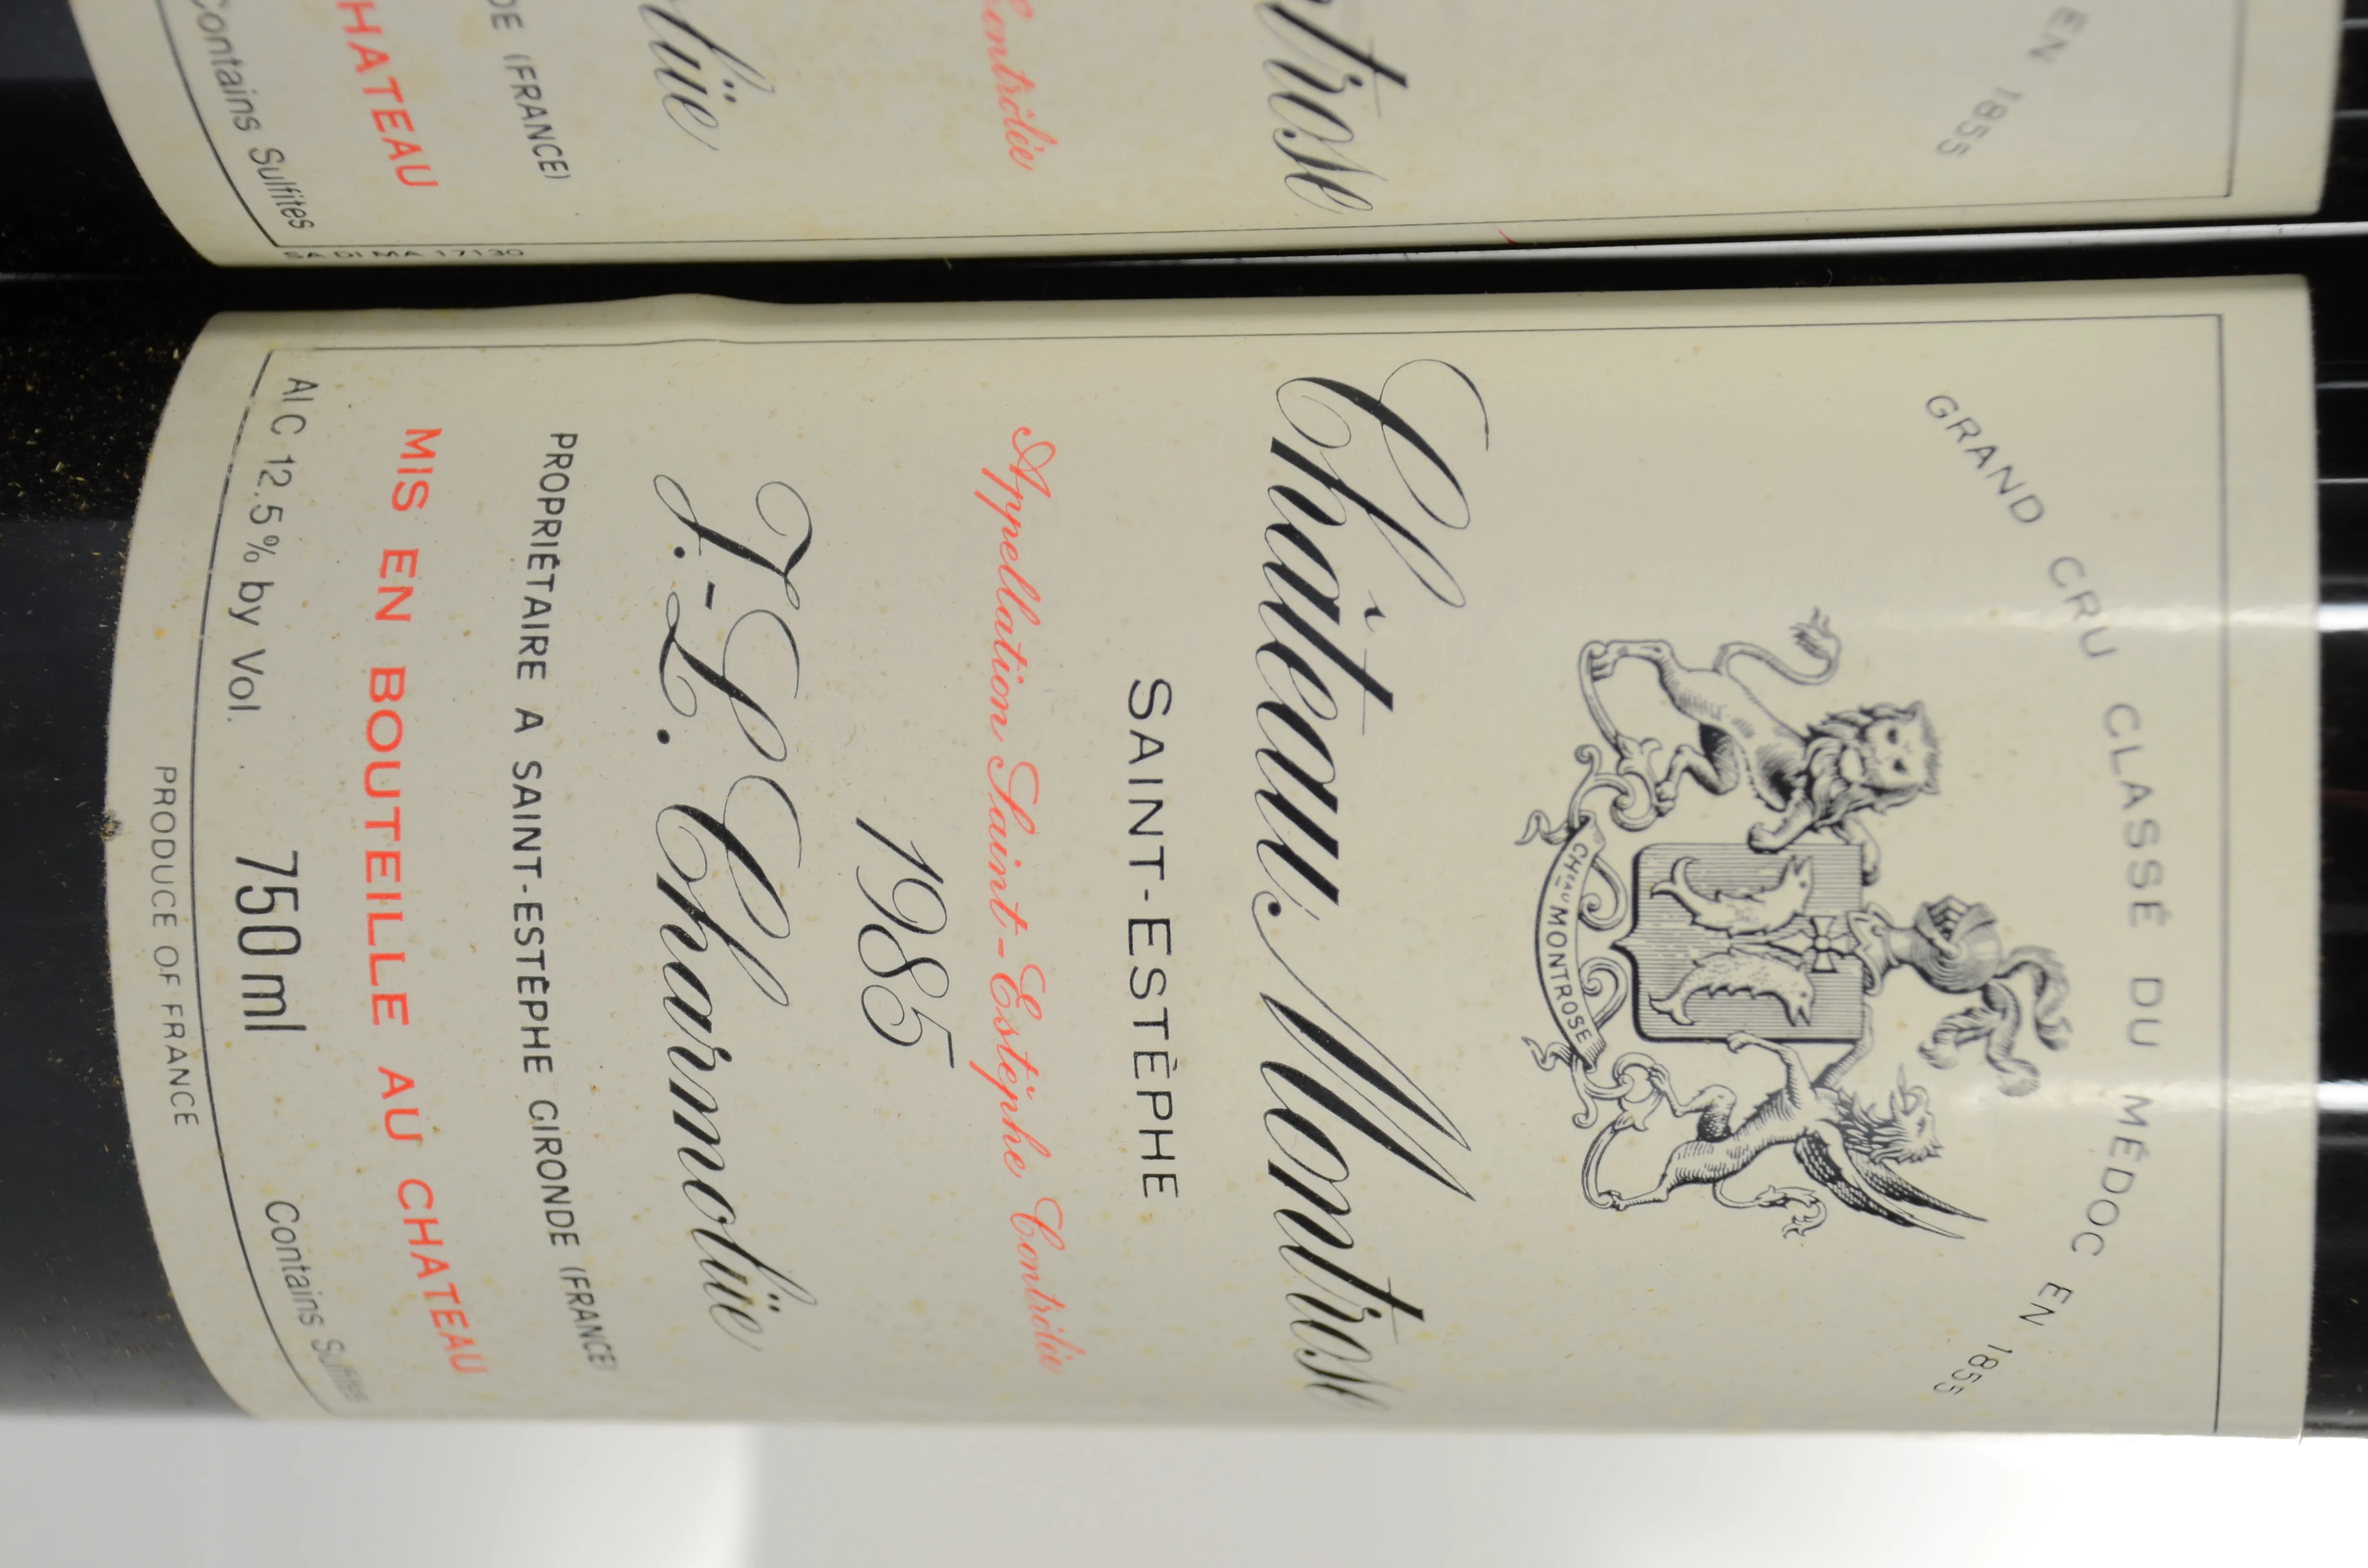 GRAND CRU CLASSÉ DU MÉDOC EN 1855
CHEAU MONTROSE
Château Montrose
SAINT-ESTÈPHE
Appellation Saint-Estèphe Contrôlée
1985
J.-L. Charmolüe
PROPRIÉTAIRE A SAINT-ESTÈPHE GIRONDE (FRANCE)
MIS EN BOUTEILLE AU CHATEAU
Alc 12.5% by Vol. 750 ml Contains Sulfites
PRODUCE OF FRANCE
EN 1855
ntrose
Contrôlée
lüe
DE (FRANCE)
HATEAU
Contains Sulfites
SADIMA 17130